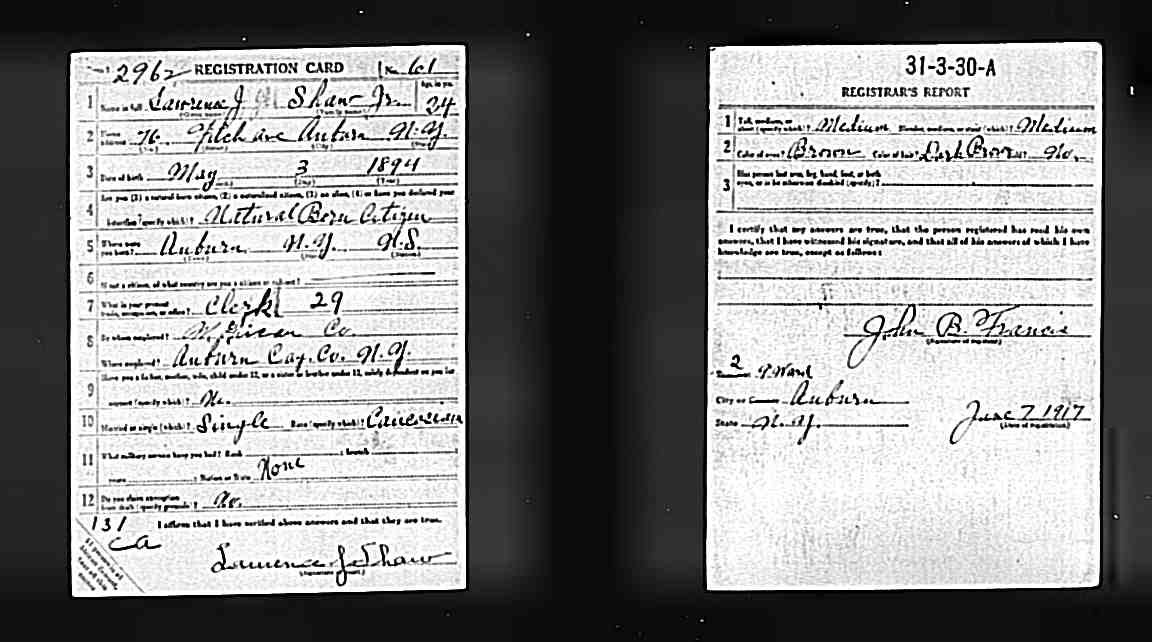 2962 REGISTRATION CARD No. 61
1 Name in full Lawrence J Shaw Jr. Age, in yrs. 24
(Given name) (Family name)
2 Home address 76 Fitch ave Auburn N.Y.
(No.) (Street) (City) (State)
3 Date of birth May 3 1894
(Month) (Day) (Year)
Are you (1) a natural born citizen, (2) a naturalized citizen, (3) an alien, (4) or have you declared your
4 intention (specify which)? Natural Born Citizen
5 Where were you born? Auburn N.Y. U.S.
(Town) (State) (Nation)
6 If not a citizen, of what country are you a citizen or subject?
7 What is your present trade, occupation, or office? Clerk 29
8 By whom employed? Co.
Where employed? Auburn Cay. Co. N.Y.
9 Have you a father, mother, wife, child under 12, or a sister or brother under 12, solely dependent on you for
support (specify which)? No.
10 Married or single (which)? Single Race (specify which)? Caucasian
11 What military service have you had? Rank ; branch ;
years ; Nation or State None
12 Do you claim exemption from draft (specify grounds)? No.
I affirm that I have verified above answers and that they are true.
131
ca
Lawrence J Shaw
(Signature or mark)
31-3-30-A
REGISTRAR'S REPORT
1 Tall, medium, or short (specify which)? Medium Slender, medium, or stout (which)? Medium
2 Color of eyes? Brown Color of hair? Dark Brown Bald? No.
3 Has person lost arm, leg, hand, foot, or both eyes, or is he otherwise disabled (specify)?
I certify that my answers are true, that the person registered has read his own
answers, that I have witnessed his signature, and that all of his answers of which I have
knowledge are true, except as follows:
John B. Francis
(Signature of registrar)
Precinct 2 9. Ward
City or County Auburn
State N.Y.
June 7 1917
(Date of registration)